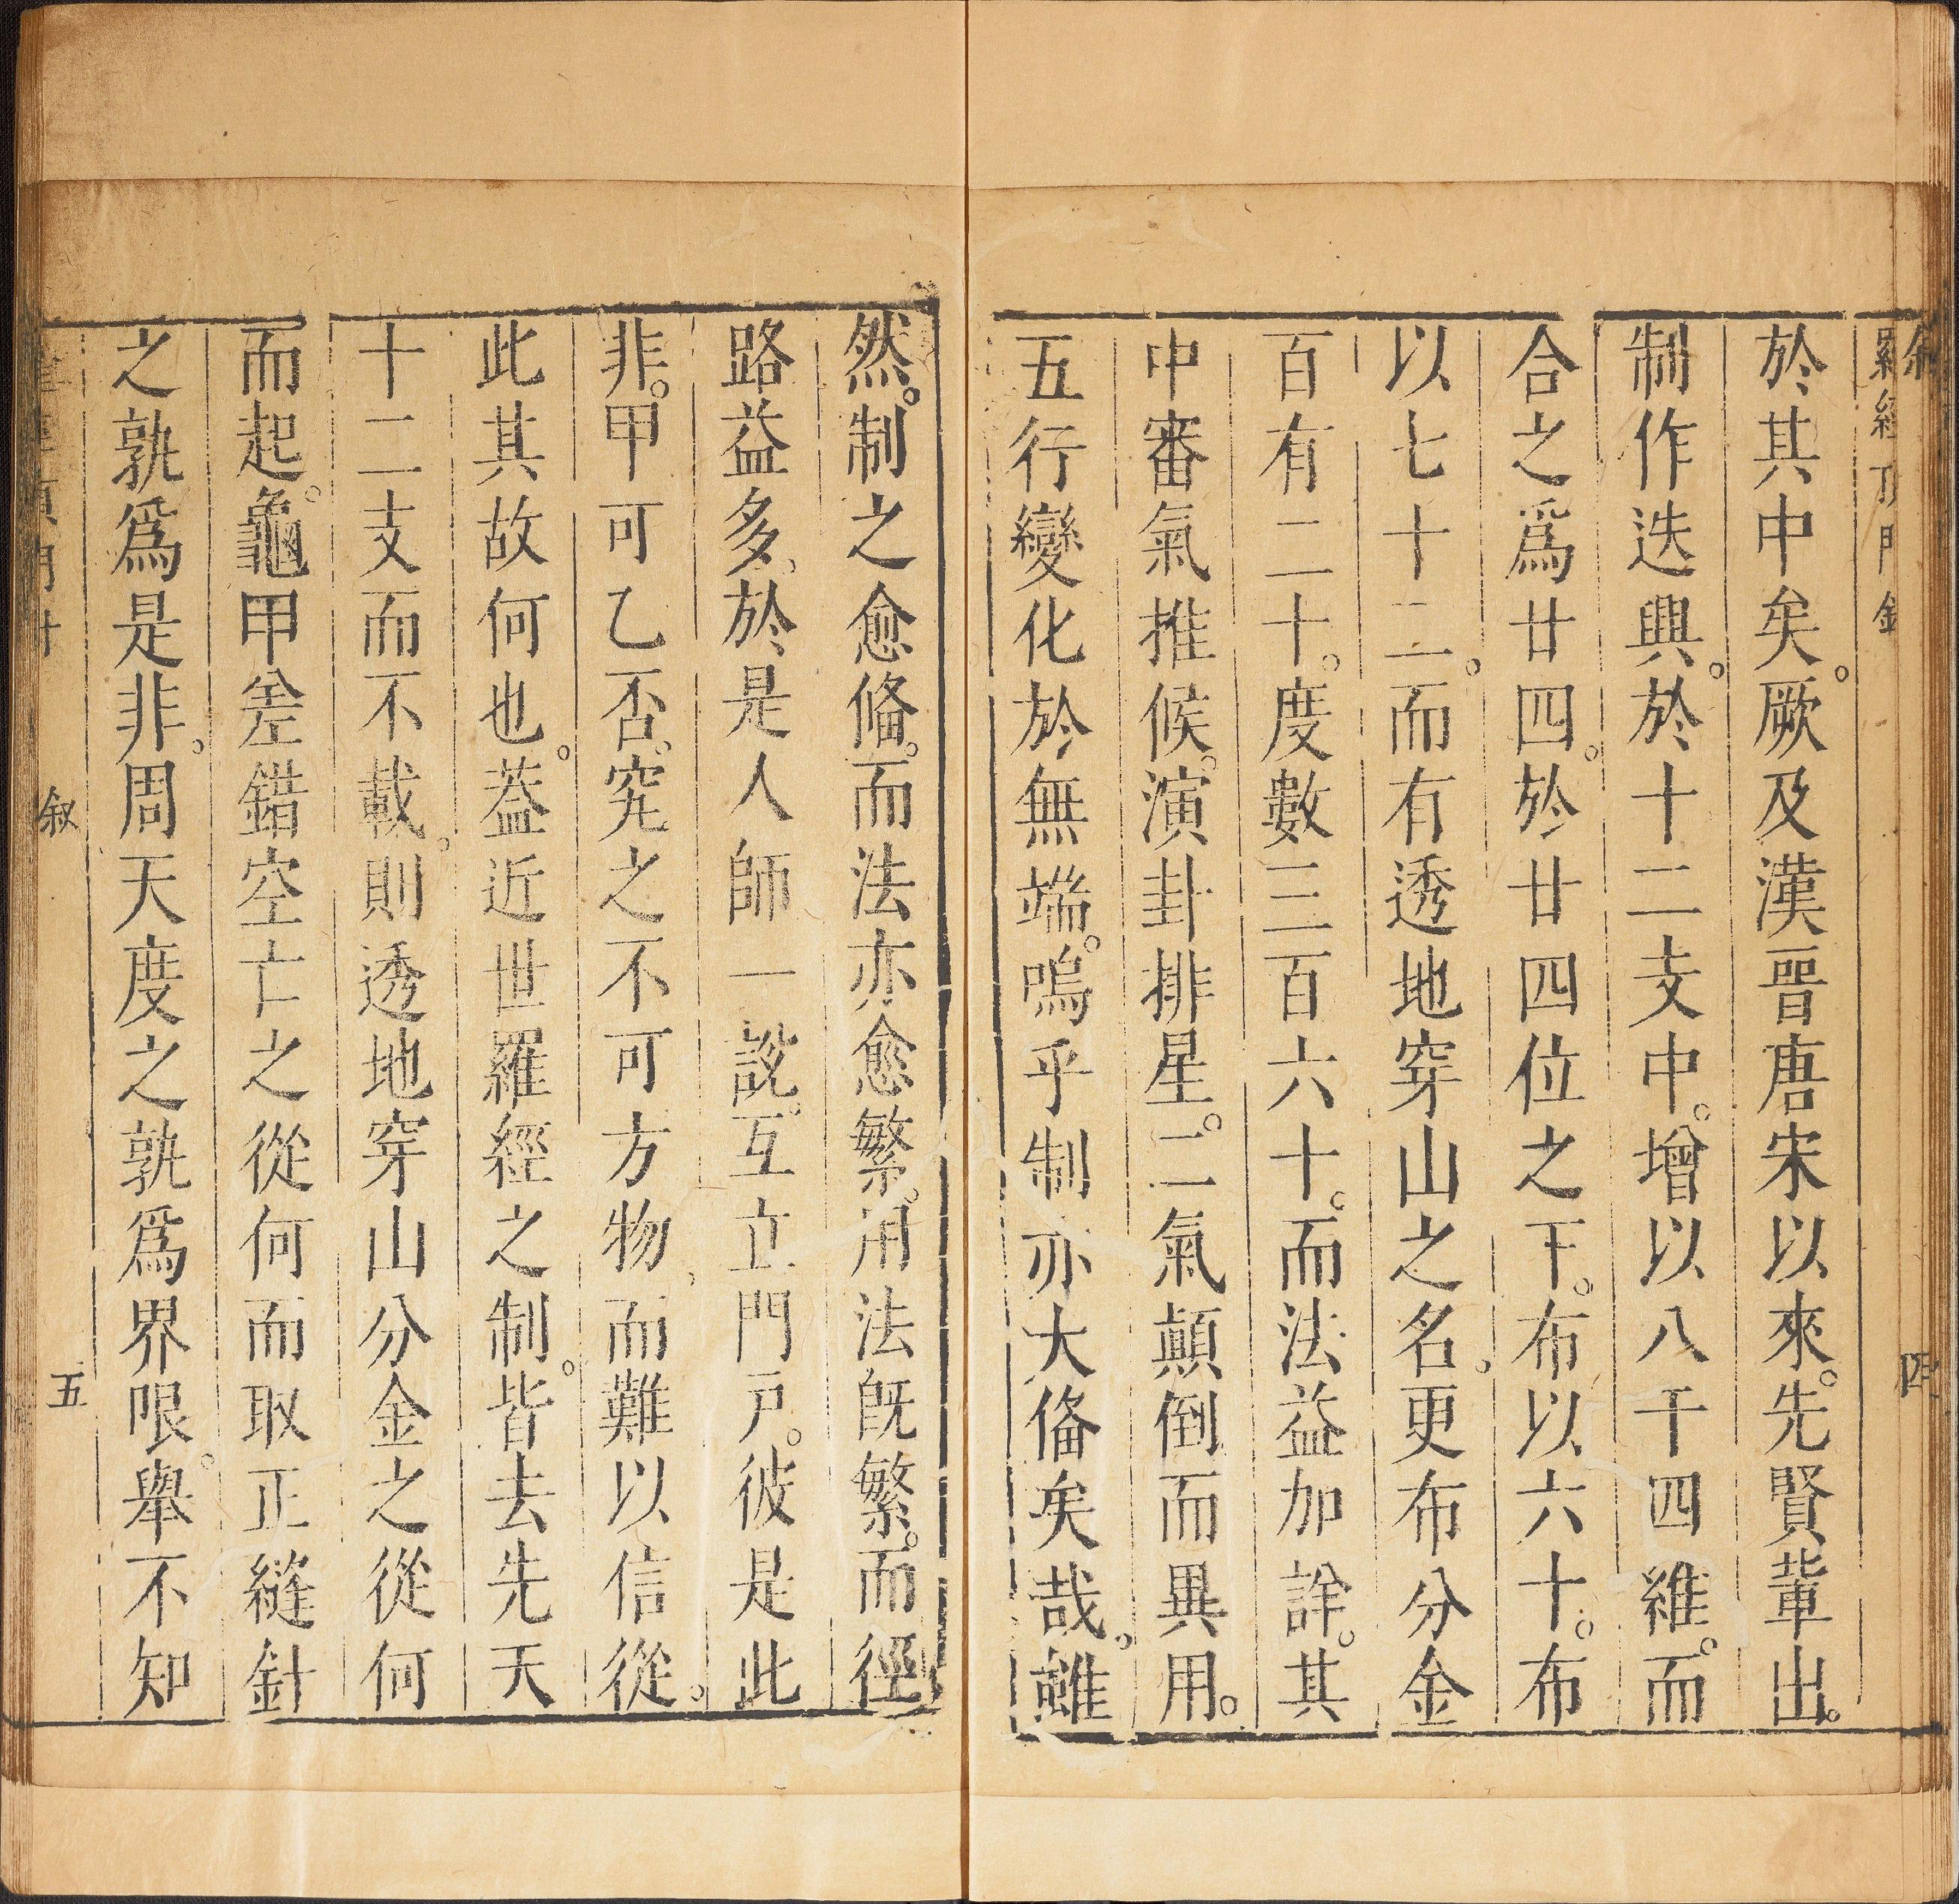 羅經頂門針
四
於其中矣。厥及漢晉唐宋以來。先賢輩出。
制作迭興。於十二支中。增以八干四維。而
合之爲廿四。於廿四位之下。布以六十。布
以七十二。而有透地穿山之名。更布分金
百有二十。度數三百六十。而法益加詳。其
中審氣推候。演卦排星。二氣顛倒而異用。
五行變化於無端。嗚乎制亦大俻矣哉。雖
然。制之愈俻。而法亦愈繁。用法旣繁。而徑
路益多。於是人師一說。互立門戶。彼是此
非。甲可乙否。究之不可方物。而難以信從。
此其故何也。葢近世羅經之制。皆去先天
十二支而不載。則透地穿山分金之從何
而起。龜甲差錯空亡之從何而取正縫針
之孰爲是非。周天度之孰爲界限。舉不知
敘
五